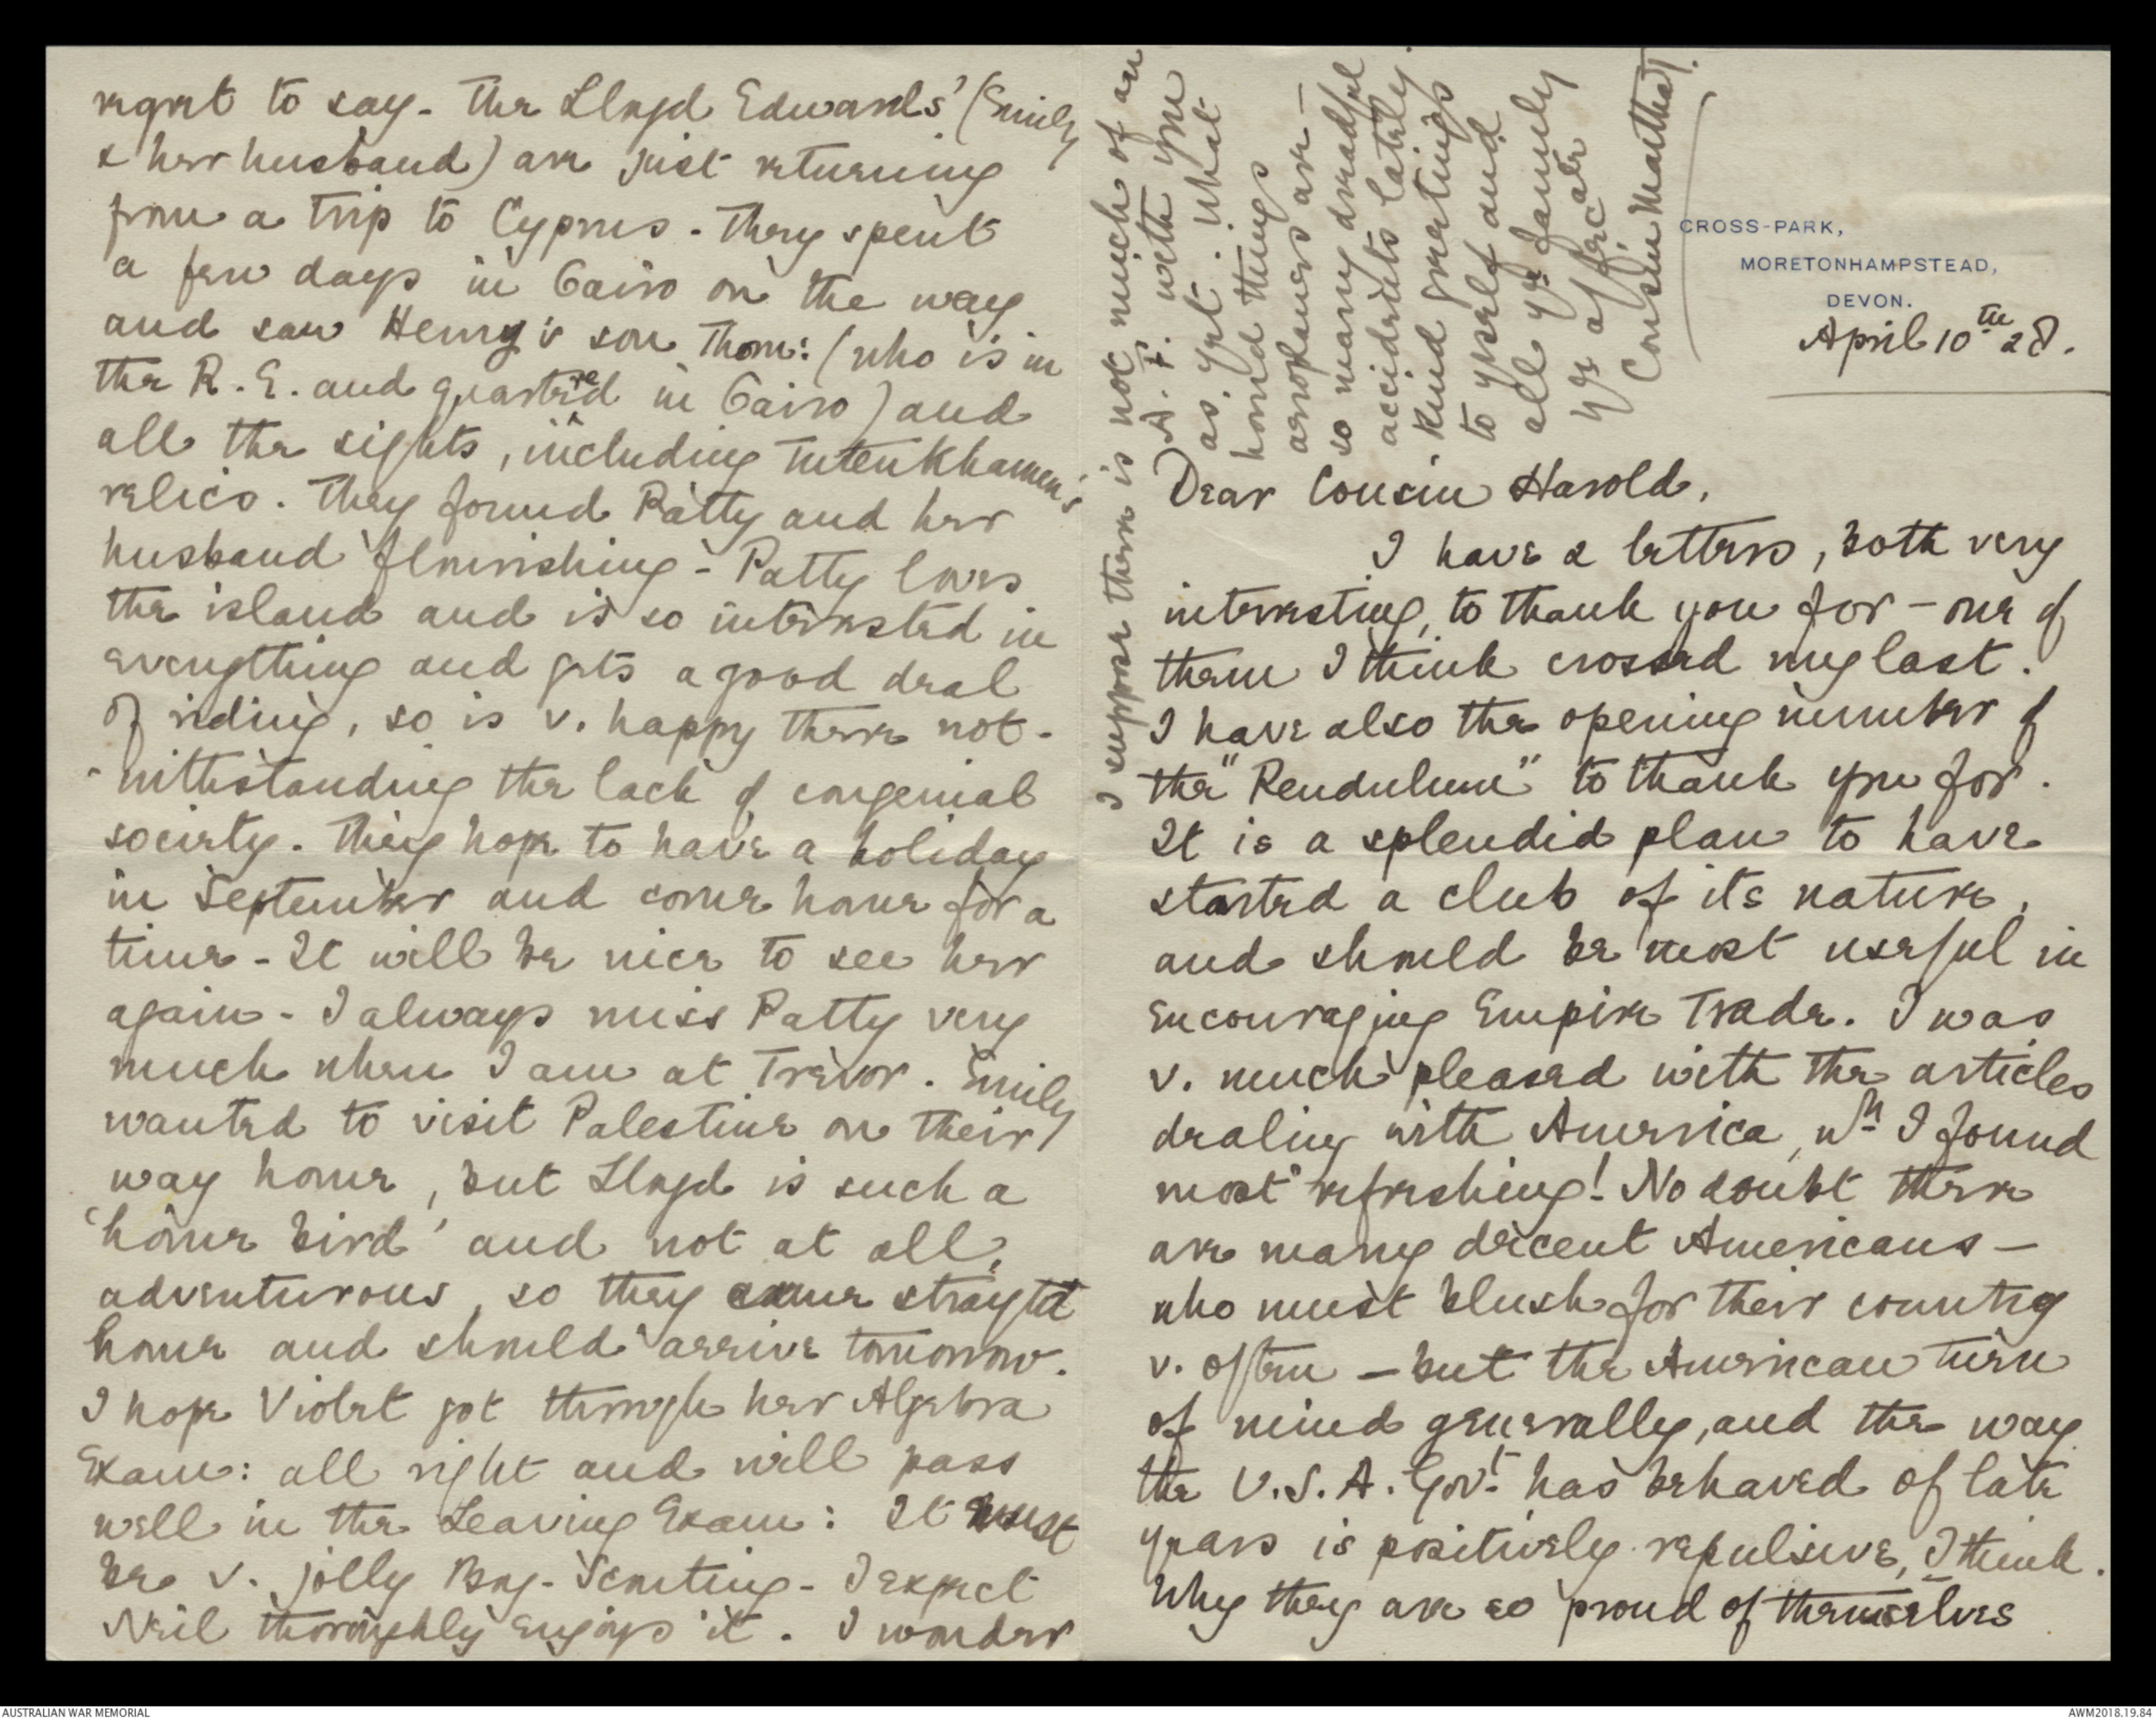 CROSS-PARK,
MORETONHAMPSTEAD,
DEVON.
April 10th 28.
Dear Cousin Harold,
I have 2 letters, both very
interesting, to thank you for - one of
them I think crossed my last.
I have also the opening number of
the "Pendulum" to thank you for.
It is a splendid plan to have
started a club of its nature,
and should be most useful in
encouraging Empire Trade. I was
v. much pleased with the articles
dealing with America, wh I found
most refreshing! No doubt there
are many decent Americans -
who must blush for their country
v. often - but the American turn
of mind generally, and the way
the U.S.A. Govt. has behaved of late
years is positively repulsive, I think.
Why they are so proud of themselves
regret to say - The Lloyd Edwards' (Emily
& her husband) are just returning
from a trip to Cyprus - They spent
a few days in Cairo on the way
and saw Henry's son Thom: (who is in
the R.E. and quartered in Cairo) and
all the sights, including Tutenkhamen's
relics. They found Patty and her
husband flourishing - Patty loves
the island and is so interested in
everything and gets a good deal
of riding, so is v. happy there not-
-withstanding the lack of congenial
society. They hope to have a holiday
in September and come home for a
time - It will be nice to see her
again - I always miss Patty very
much when I am at Trevor. Emily
wanted to visit Palestine on their
way home, but Lloyd is such a
'home bird' and not at all
adventurous, so they came straight
home and should arrive tomorrow.
I hope Violet got through her Algebra
Exam: all right and will pass
well in the Leaving Exam: It must
be v. jolly Boy-Scouting - I expect
Neil thoroughly enjoys it. I wonder
I suppose there is not much of an
A.F. with you
as yet. What
horrid things
aeroplanes are -
so many dreadful
accidents lately.
Kind greetings
to yrself and
all yr family
Yr affecate
Cousin Martha T.
AUSTRALIAN WAR MEMORIAL
AWM2018.19.84